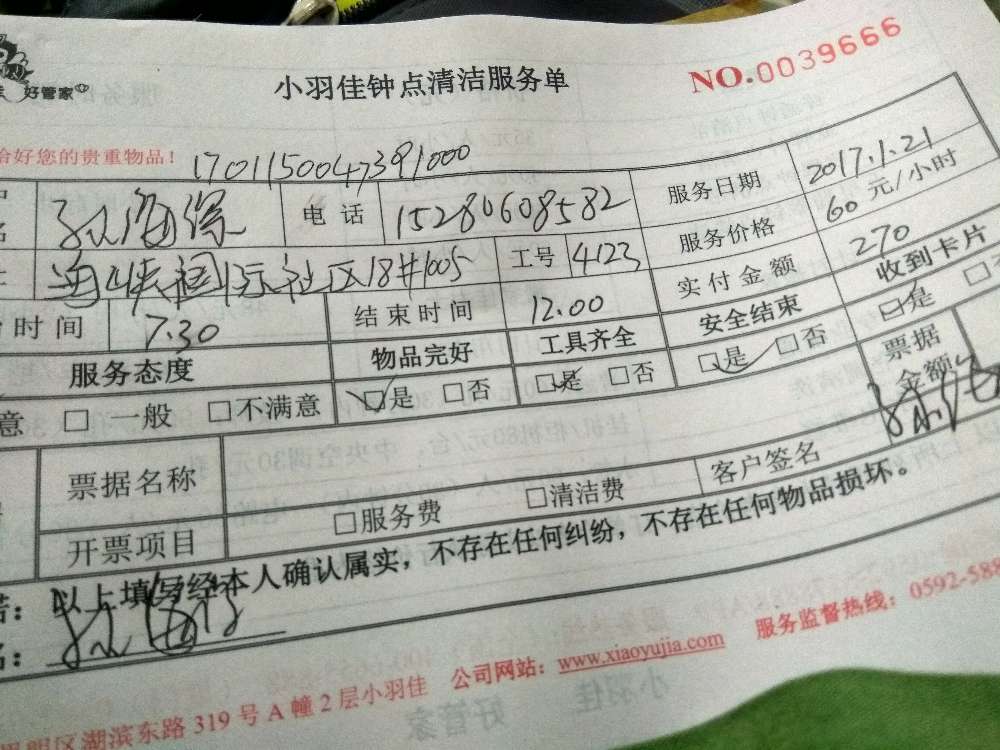 好管家
小羽佳钟点清洁服务单
NO.0039666
好您的贵重物品！
1701150047391000
电话 15280608582 服务日期 2017.1.21
海峡国际社区18#1005 工号 4123 服务价格 60元/小时
时间 7.30 结束时间 12.00 实付金额 270
服务态度 物品完好 工具齐全 安全结束 收到卡片
意 □一般 □不满意 □是 □否 □是 □否 □是 □否 □是
票据名称 票据金额
开票项目 □服务费 □清洁费 客户签名
以上填写经本人确认属实，不存在任何纠纷，不存在任何物品损坏。
明区湖滨东路319号A幢2层小羽佳 公司网站：www.xiaoyujia.com 服务监督热线：0592-588